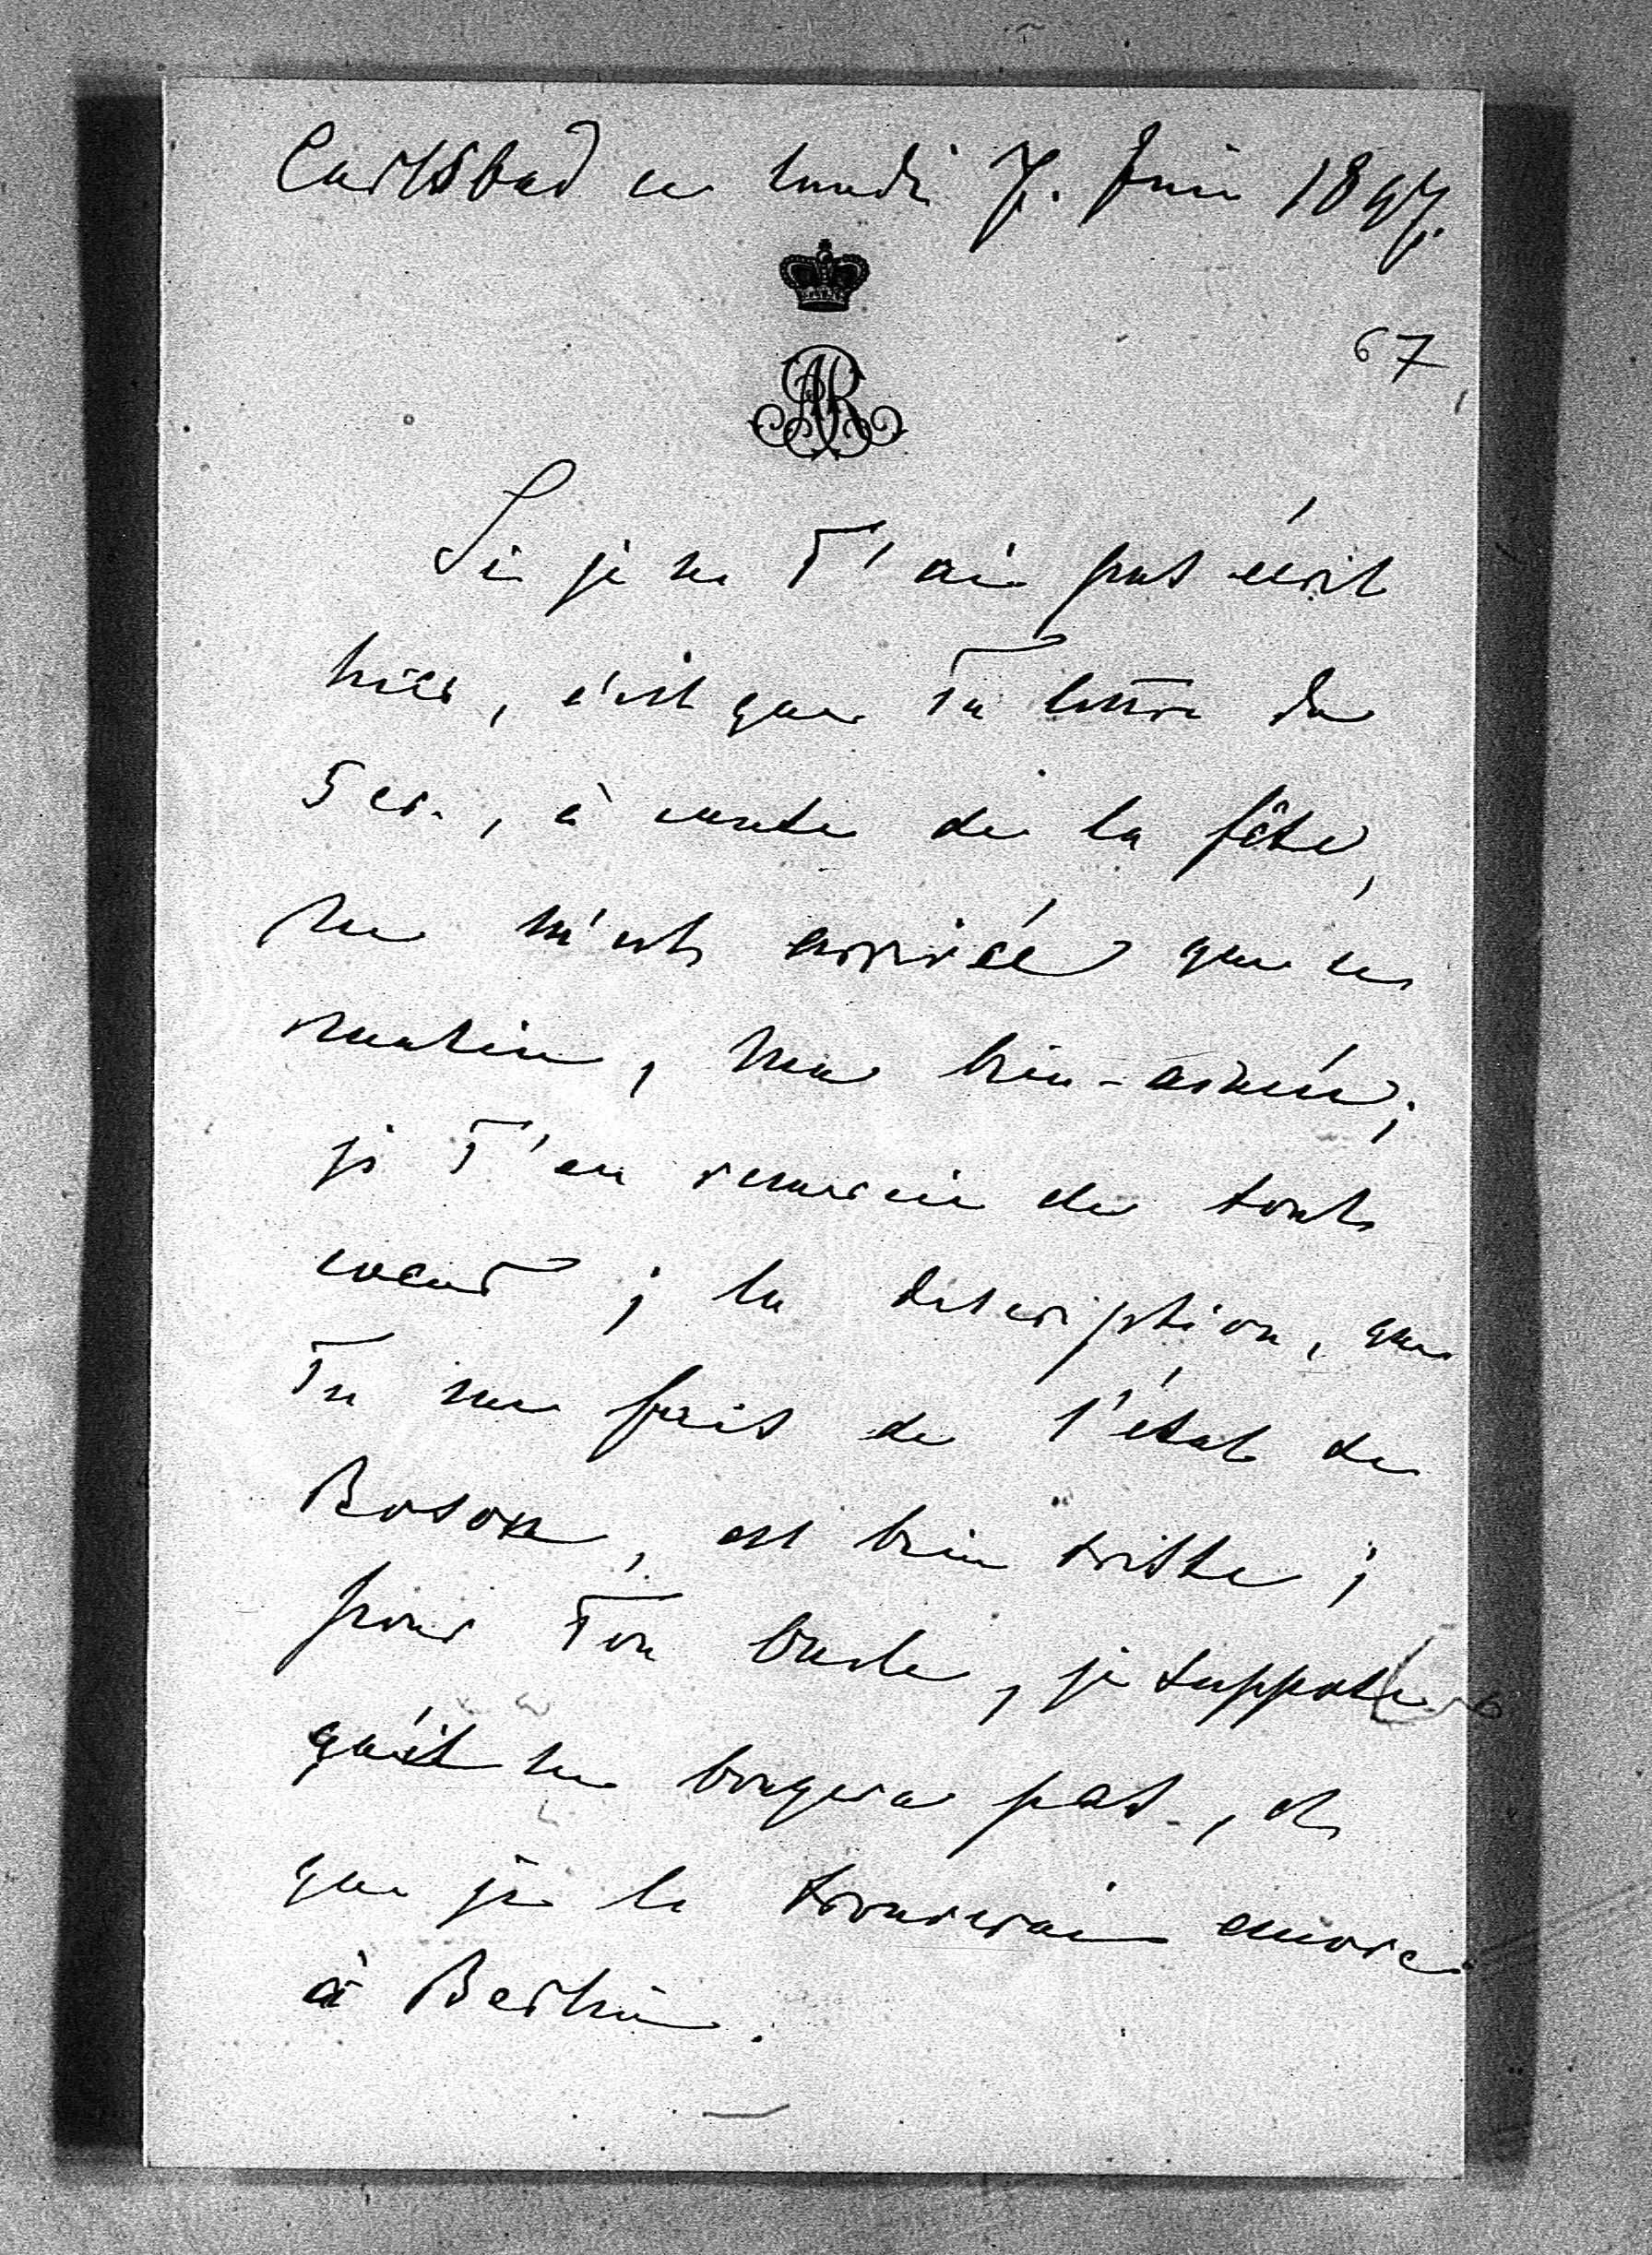 Carlsbad ce lundi 7. Juin 1897.
67
AR
Si je ne T'ai pas écrit
hier, c'est que Ta lettre du
5 cr., à cause de la fête,
ne m'est arrivée que ce
matin, ma bien-aimée;
je T'en remercie de tout
coeur; la description, que
Tu me fais de l'état de
Boson, est bien triste;
pour Ton Oncle, je suppose
qu'il ne bougera pas, et
que je le trouverai encore
à Berlin.